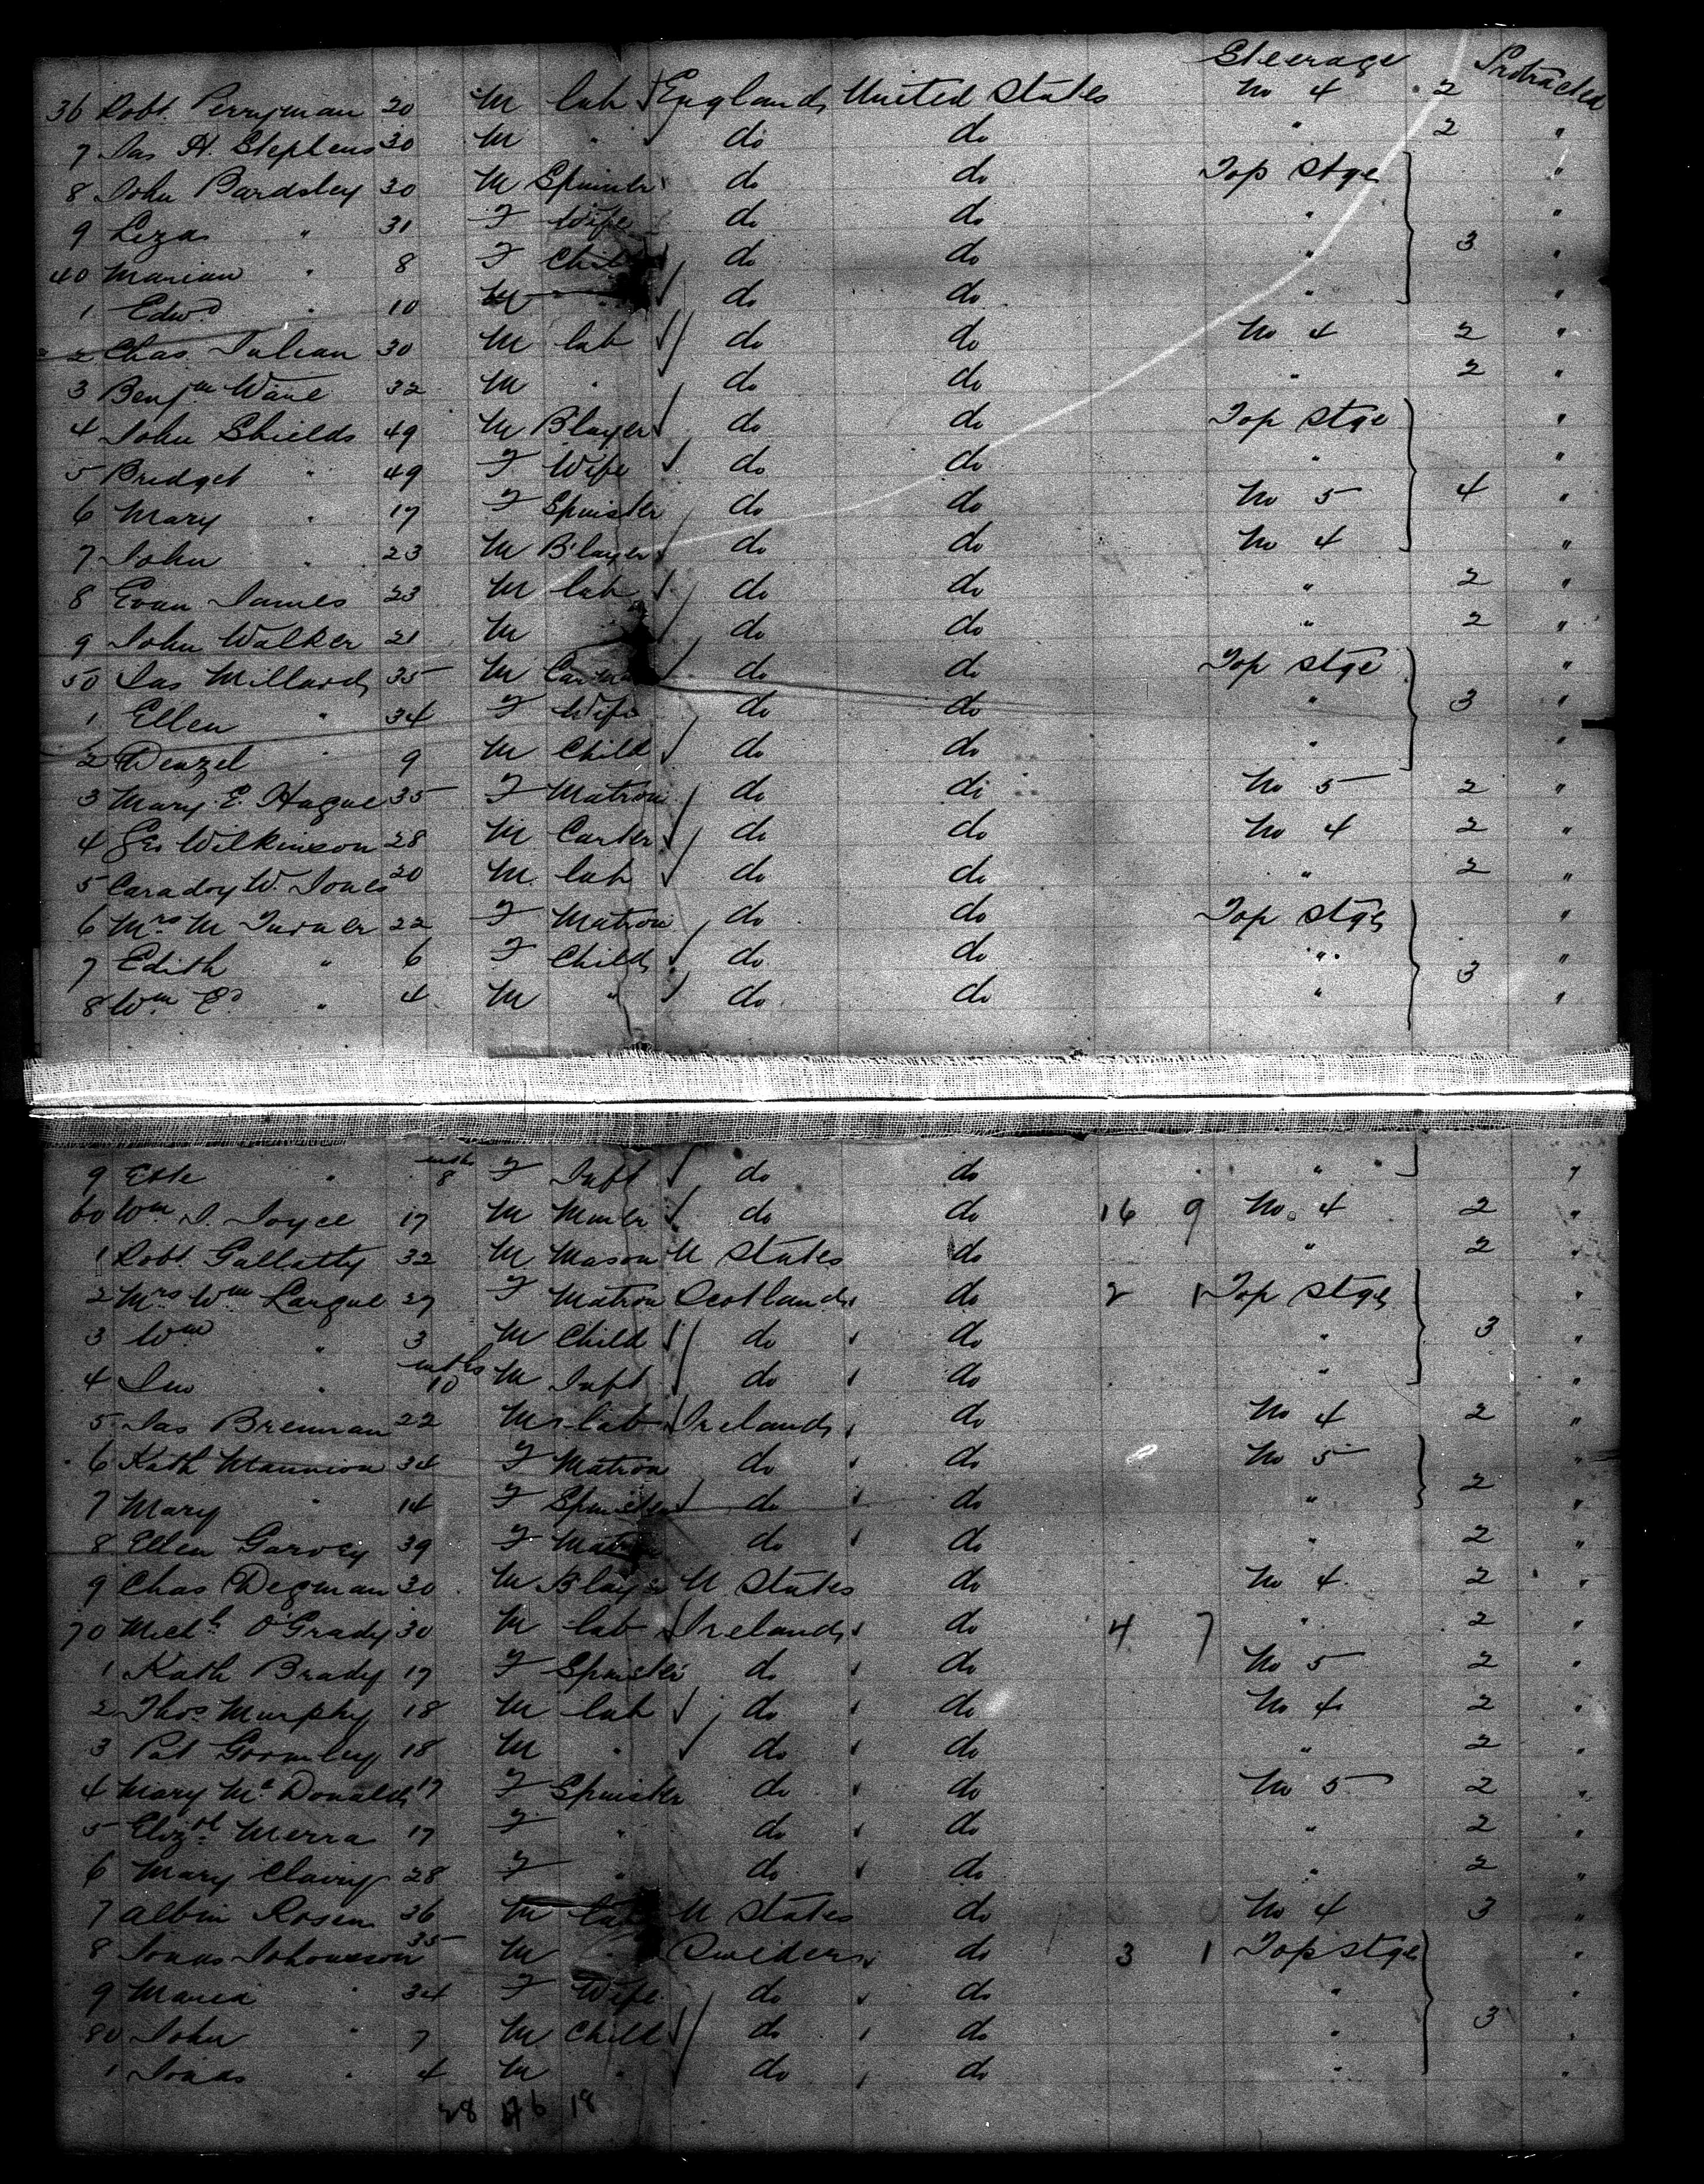 Steerage Protracted
36 Robt. Perryman 20 M lab England United States No 4 2
7 Jas H. Stephens 30 M " do do " 2 "
8 John Bardsley 30 M Spinner do do Top Stge "
9 Liza " 31 F Wife do do " "
40 Marian " 8 F Child do do " 3 "
1 Edwd " 10 M " do do " "
2 Chas. Julian 30 M lab do do No 4 2 "
3 Benjm 32 M " do do " 2 "
4 John Shields 49 M B'layer do do Top Stge "
5 Bridget " 49 F Wife do do " "
6 Mary " 17 F Spinster do do No 5 4 "
7 John " 23 M B'layer do do No 4 "
8 Evan James 23 M lab do do " 2 "
9 John Walker 21 M do do " 2 "
50 Jas Millard 35 M do do Top Stge "
1 Ellen " 34 F Wife do do " 3 "
2 Denzel " 9 M Child do do " "
3 Mary E. Hague 35 F Matron do do No 5 2 "
4 Geo Wilkinson 28 M Carter do do No 4 2 "
5 Caradoy W. Jones 20 M lab do do " 2 "
6 Mrs M Turner 22 F Matron do do Top Stge "
7 Edith " 6 F Child do do " 3 "
8 Wm Ed " 4 M " do do " "
9 " mths 8 F Inft do do " "
60 Wm J. Joyce 17 M do do 16 9 No. 4 2 "
1 Robt. Gallatly 32 M Mason U States do " 2 "
2 Mrs Wm Largue 27 F Matron Scotland do 2 1 Top Stge "
3 Wm " 3 M Child do do " 3 "
4 " mths 10 M Inft do do " "
5 Jas Brennan 22 M lab Ireland do No 4 2 "
6 Kath Mannion 34 F Matron do do No 5 "
7 Mary " 14 F Spinster do do " 2 "
8 Ellen Garvey 39 F Matron do do " 2 "
9 Chas Degman 30 M B'layer U States do No 4 2 "
70 Michl O'Grady 30 M lab Ireland do 4 7 " 2 "
1 Kath Brady 17 F Spinster do do No 5 2 "
2 Thos Murphy 18 M lab do do No 4 2 "
3 Pat Gormley 18 M " do do " 2 "
4 Mary McDonald 17 F Spinster do do No 5 2 "
5 Elizth Merra 17 F " do do " 2 "
6 Mary 28 F " do do " 2 "
7 Albin Rosen 36 M lab U States do No 4 3 "
8 Jonas Johansson 35 M " Sweden do 3 1 Top Stge "
9 Maria " 34 F Wife do do " "
80 John " 7 M Child do do " 3 "
1 Jonas " 4 M " do do " "
28 18